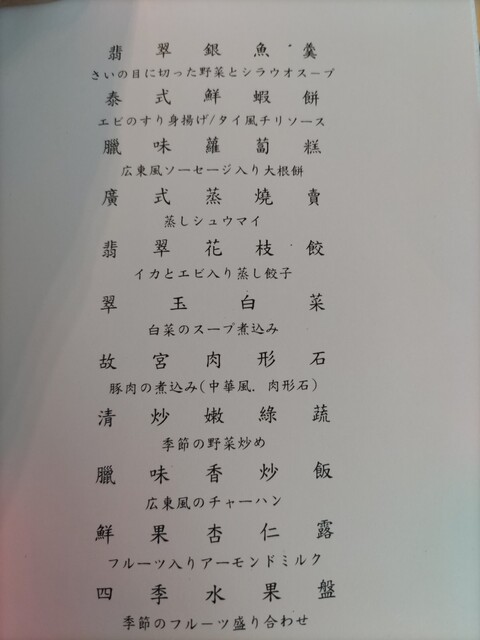 翡翠銀魚羹
さいの目に切った野菜とシラウオスープ
泰式鮮蝦餅
エビのすり身揚げ/タイ風チリソース
臘味蘿蔔糕
広東風ソーセージ入り大根餅
廣式蒸燒賣
蒸しシュウマイ
翡翠花枝餃
イカとエビ入り蒸し餃子
翠玉白菜
白菜のスープ煮込み
故宮肉形石
豚肉の煮込み(中華風．肉形石)
清炒嫩綠蔬
季節の野菜炒め
臘味香炒飯
広東風のチャーハン
鮮果杏仁露
フルーツ入りアーモンドミルク
四季水果盤
季節のフルーツ盛り合わせ